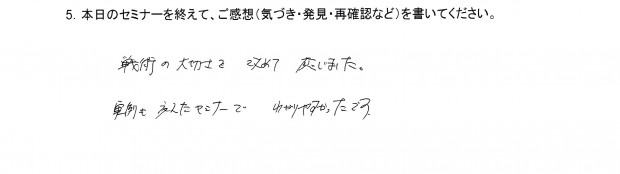 5. 本日のセミナーを終えて、ご感想(気づき・発見・再確認など)を書いてください。
戦術の大切さを 改めて 感じました。
実例も 交えたセミナーで わかりやすかったです。